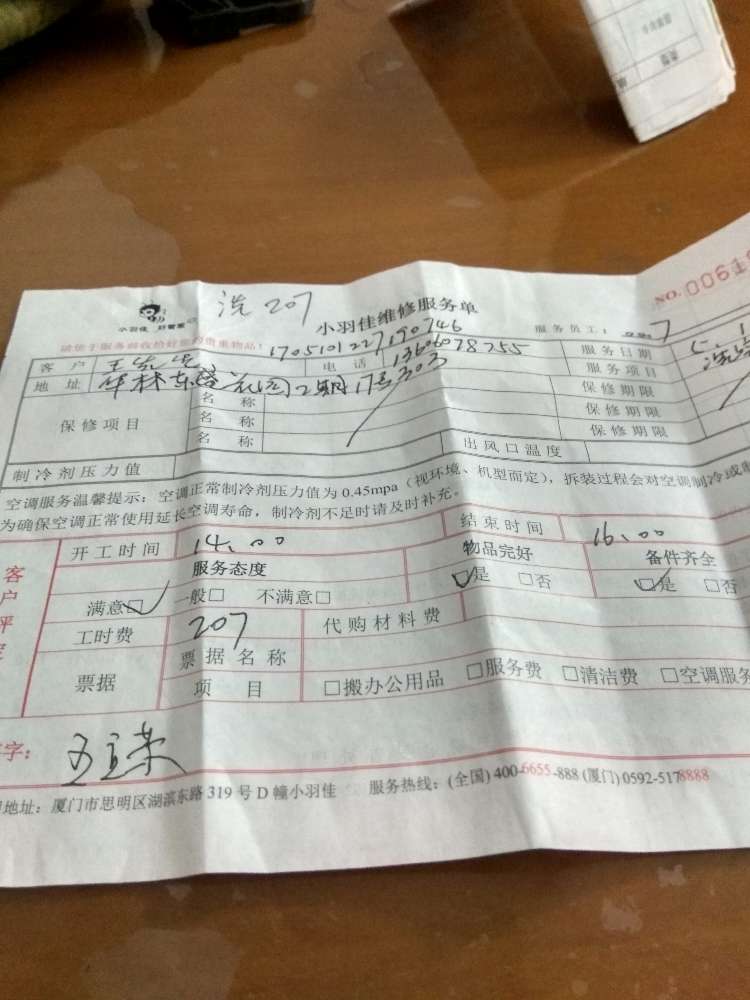 洗 207
小羽佳 好管家
小羽佳维修服务单
NO. 0061
请您于服务前收捡好您的贵重物品!
170510122719 0746
服务员工:
7
客户 王先生 电话 13606078255 服务日期 5.1
地址 2期17号303 服务项目 洗
保修项目 名称 保修期限
名称 保修期限
名称 保修期限
制冷剂压力值 出风口温度
空调服务温馨提示:空调正常制冷剂压力值为 0.45mpa(视环境、机型而定),拆装过程会对空调制冷或制
为确保空调正常使用延长空调寿命,制冷剂不足时请及时补充。
客户评定
开工时间 14:00 结束时间 16:00
服务态度 物品完好 备件齐全
满意☑ 一般□ 不满意□ ☑是 □否 ☑是 □否
工时费 207 代购材料费
票据 票据名称
项目 □搬办公用品 □服务费 □清洁费 □空调服务
字:
地址:厦门市思明区湖滨东路 319 号 D 幢小羽佳 服务热线:(全国) 400-6655-888 (厦门) 0592-5178888